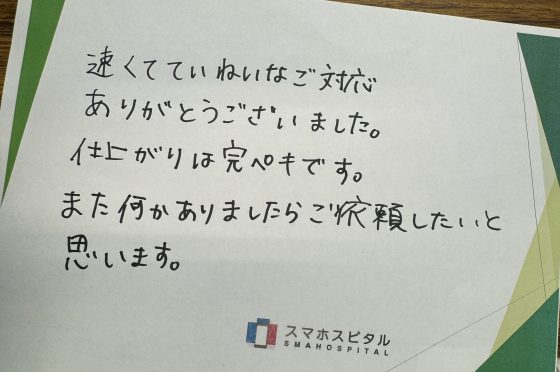 速くてていねいなご対応
ありがとうございました。
仕上がりは完ペキです。
また何かありましたらご依頼したいと
思います。
スマホスピタル
SMAHOSPITAL